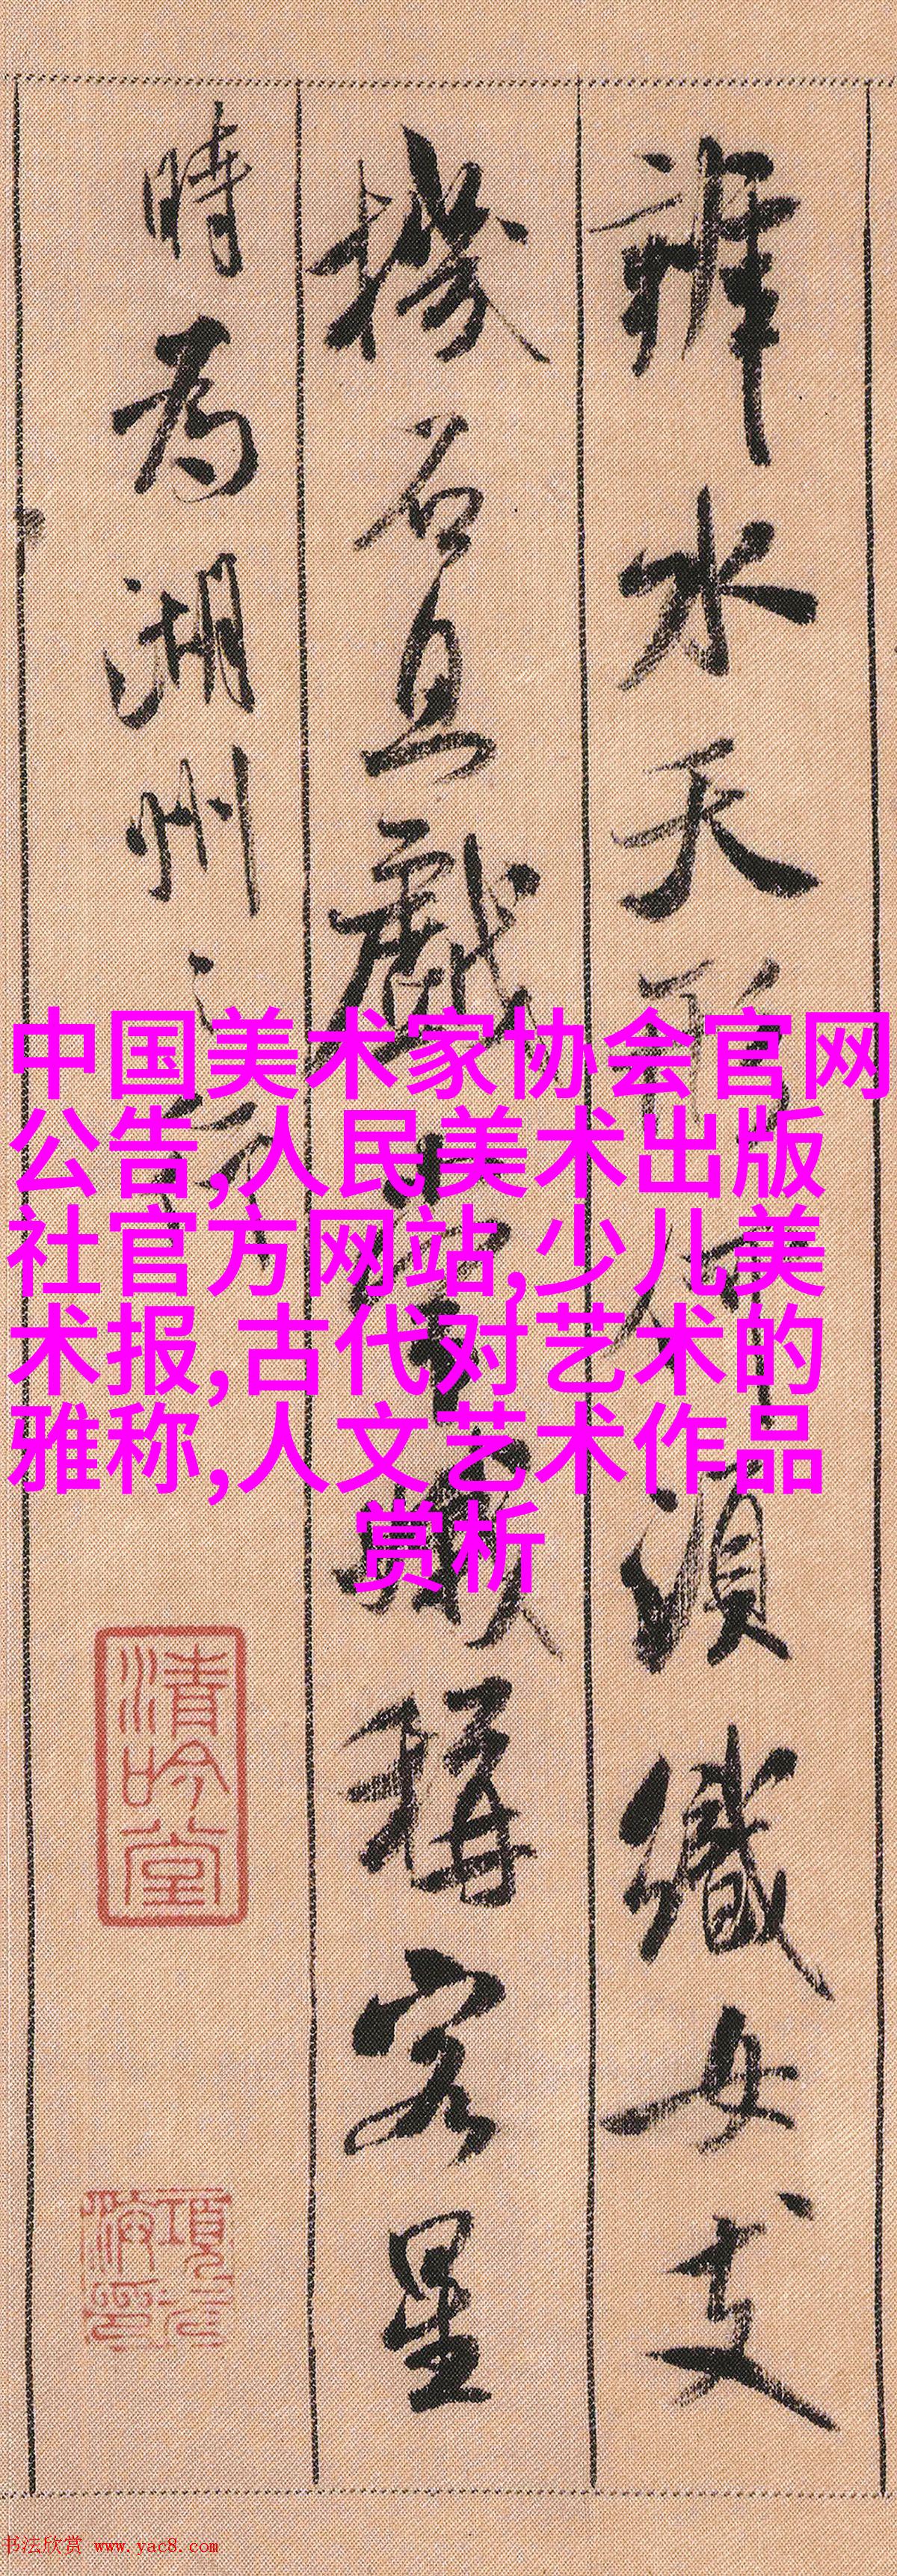 辨水天形何須織女支
機石且戲常娥稱客星
時為湖州之行
中国美术家协会官网
公告,人民美术出版
社官方网站,少儿美
术报,古代对艺术的
雅称,人文艺术作品
赏析
清吟堂
項元汴印
书法欣赏 www.yac8.com